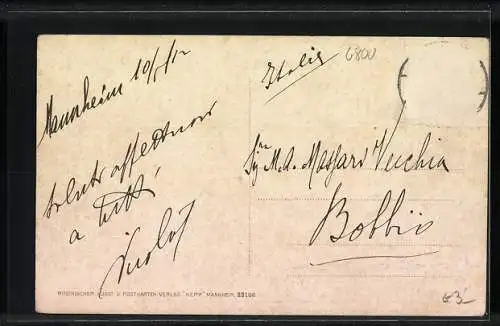 Mannheim 10/5/12
saluti affettuosi
a tutti
Italia
6800
Sig.ra M.A. Massara Vecchia
Bobbio
RHEINISCHER KUNST U. POSTKARTEN-VERLAG "KEPP" MANNHEIM. 22186
63/-